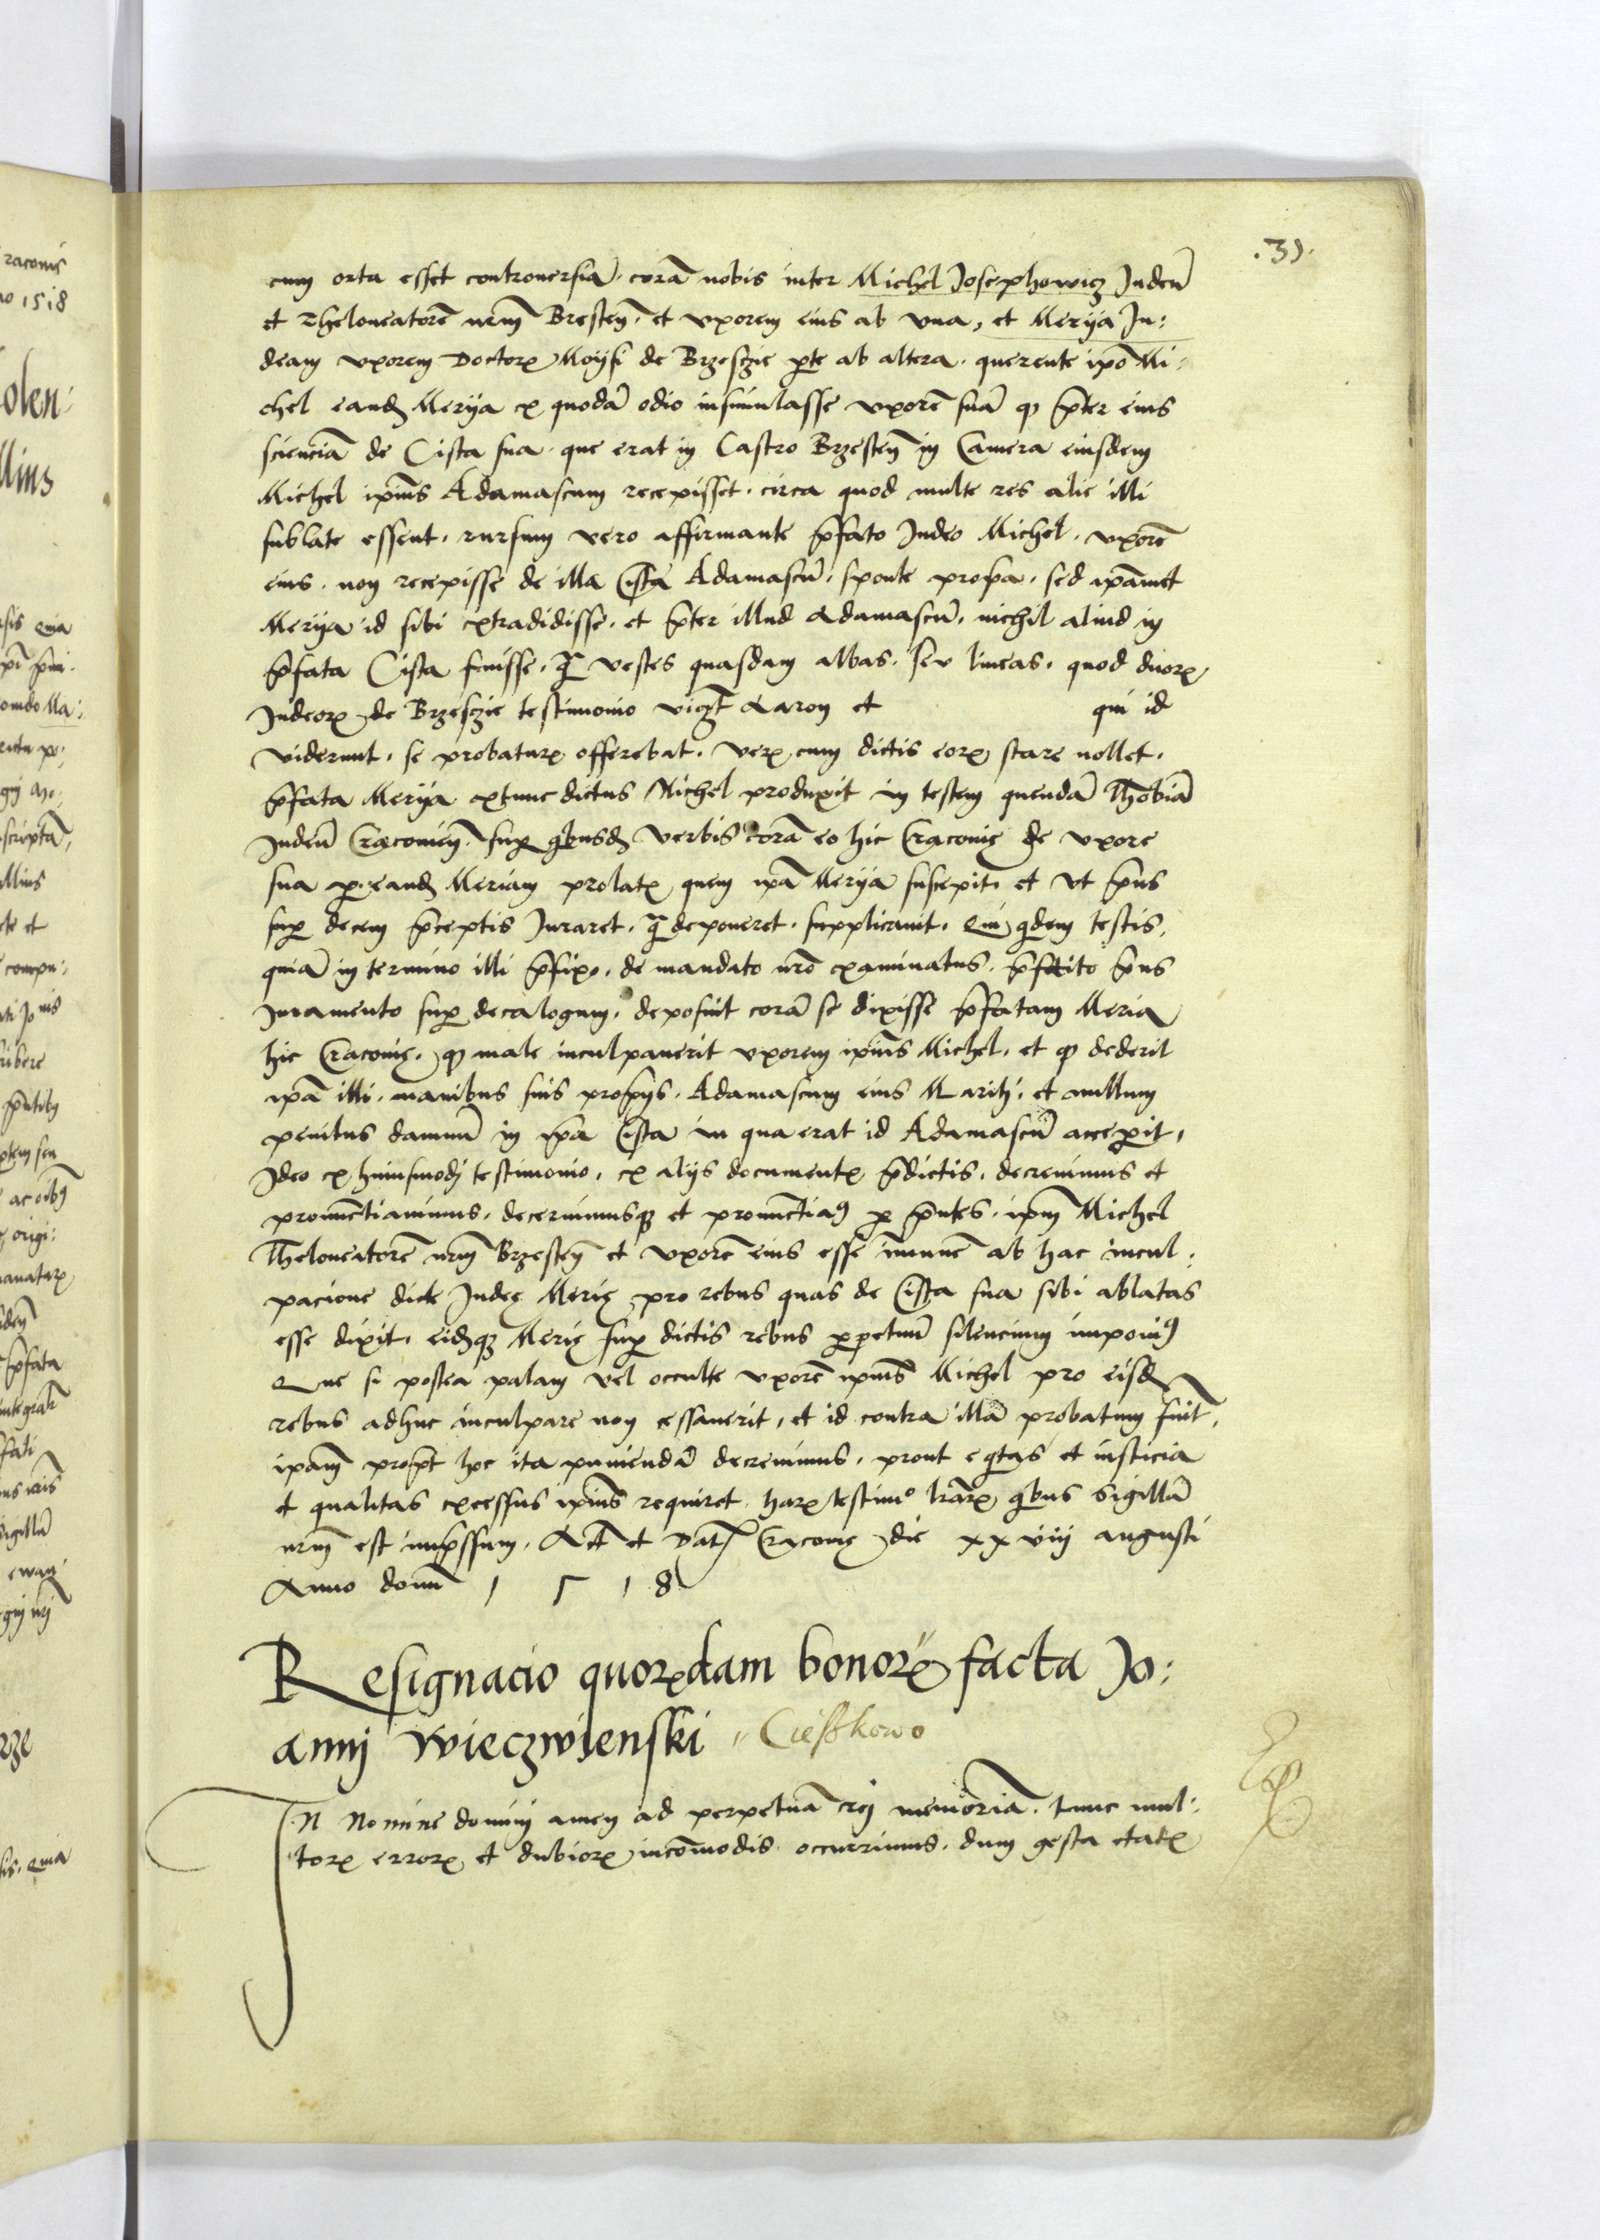 .39.
cum orta esset controuersia. corã nobis inter Michel Josephowicz Judeũ
et Theloneatorẽ nrm̃ Bresteñ. et vxorem eius ab vna, et Meryã Ju:
deam vxorem Doctorꝝ Moysi de Brzesczie pte ab altera. querente ipo Mi:
chel eandẽ Merya ex quodã odio insimulasse vxorẽ suã qp p̃ter eius
scienciã de Cista sua. que erat in Castro Brzesteñ in Camera eiusdem
Michel ipius Adamascum recepisset. circa quod multe res alie illi
sublate essent. rursum vero affirmante p̃fato Judeo Michel. vxorẽ
eius. non recepisse de illa Cista Adamascũ. sponte propria. sed ipãmet
Merya id sibi extradidisse. et p̃ter illud adamascũ. nichil aliud in
p̃fata Cista fuisse. q̃ vestes quasdam albas. seu lineas. quod duorꝝ
Judeorꝝ de Brzesczie testimonio vicꝫt Aaron et qui id
viderunt. se probaturꝝ offerebat. verꝝ cum dictis eorꝝ stare nollet.
p̃fata Merya extunc dictus Michel produxit in testem quendã Thobiã
Judeũ Cracovieñ. sup qbusdã verbis corã eo hic Cracovię de vxore
sua p eandẽ Meriam prolatꝭ quem ipã Merya suscepit. et vt p̃us
sup decem p̃ceptis Juraret. q̃ deponeret. supplicauit. Qui qdem testis.
quia in termino illi p̃fixo. de mandato nrõ examinatus. p̃stito p̃us
Juramento sup decalogum. deposuit corã se dixisse p̃fatam Meria
hic Cracovię. qp male inculpauerit vxorem ipius Michel. et qp dederit
ipã illi. manibus suis proprijs. Adamascum eius Mariti. et nullum
penitus damnũ in ipa Cista in qua erat id Adamascũ acceperit.
Ideo ex huiusmodi testimonio. ex alijs documentꝭ p̃dictis. decreuimus et
pronunctiauimus. decernimusqꝫ et pronunctiaꝰ p p̃ntes. ipm̃ Michel
Theloneatorẽ nrm̃ Brzesteñ et vxorẽ eius esse immunẽ ab hac incul:
pacione dicte Judeę Merię pro rebus quas de Cista sua sibi ablatas
esse dixit. eidẽqꝫ Merię sup dictis rebus perpetuũ silencium imponiꝰ
Que si postea palam vel occulte vxorẽ ipius Michel pro eisdẽ
rebus adhuc inculpare non cessauerit. et id contra illã probatum fuit.
ipam̃ propt hoc ita puniendã decreuimus. prout eqtas et iusticia
et qualitas excessus ipius requiret. harꝝ testimº lrarꝝ qbus Sigillũ
nrm̃ est imp̃ssum. Act̃ et Datꝭ Cracovię die xxviij augusti
Anno domi 1 5 1 8
Resignacio quorꝝdam bonorꝝ facta Jo:
anni Wieczwienski Cießkowo
IN Nomine domini amen ad perpetuã rei memoriã. tunc mul:
torꝝ errorꝝ et dubiorꝝ incõmodis occurrimus. dum gesta etatꝭ